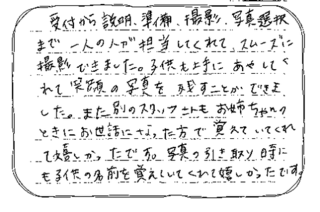 受付から説明、準備、撮影、写真選択
まで一人の人が担当してくれて、スムーズに
撮影できました。子供も上手にあやしてく
れて笑顔の写真を残すことができま
した。また別のスタッフさんもお姉ちゃんの
ときにお世話になった方で覚えていてくれ
て嬉しかったです。写真の引き取り時に
も子供の名前を覚えてくれて嬉しかったです。